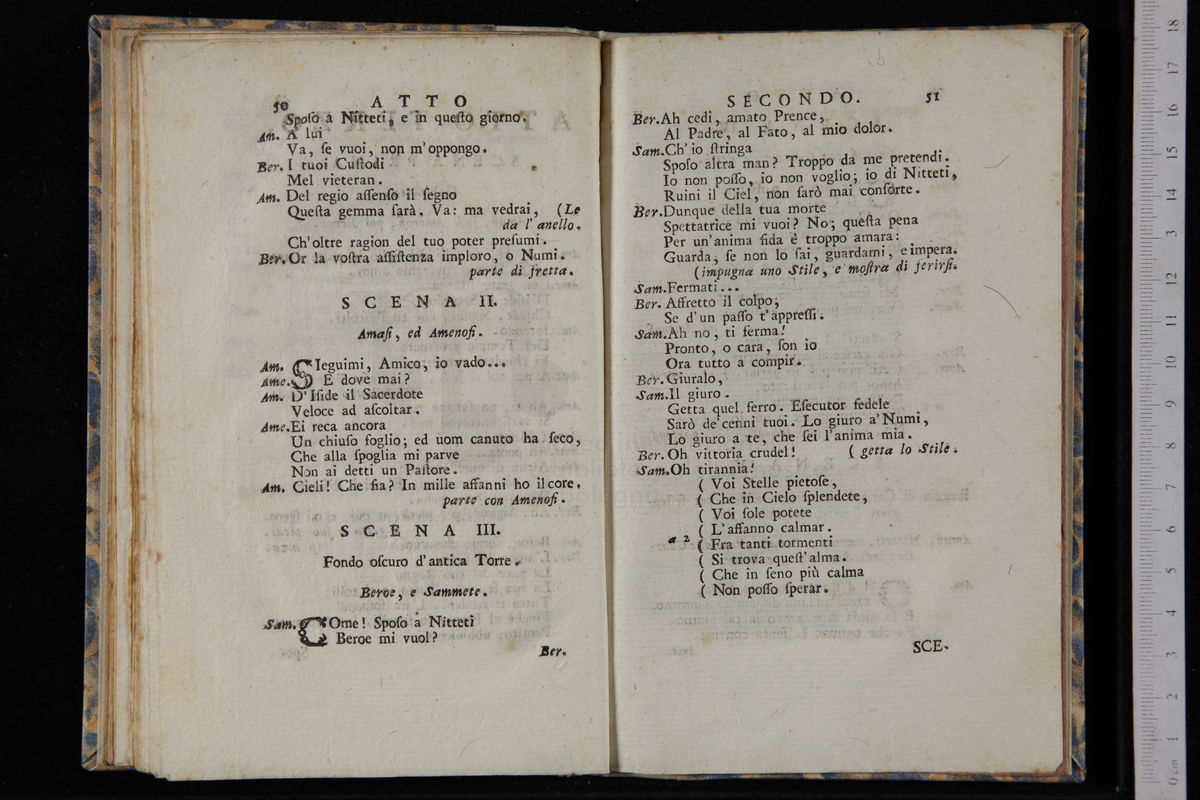 50 ATTO
Sposo à Nitteti, e in questo giorno.
Am. A lui
Va, se vuoi, non m'oppongo.
Ber. I tuoi Custodi
Mel vieteran.
Am. Del regio assenso il segno
Questa gemma sarà. Va: ma vedrai, (Le
da l'anello.
Ch'oltre ragion del tuo poter presumi.
Ber. Or la vostra assistenza imploro, o Numi.
parte di fretta.
SCENA II.
Amasi, ed Amenofi.
Am. SIeguimi, Amico, io vado...
Ame. E dove mai?
Am. D'Iside il Sacerdote
Veloce ad ascoltar.
Ame. Ei reca ancora
Un chiuso foglio; ed uom canuto ha seco,
Che alla spoglia mi parve
Non ai detti un Pastore.
Am. Cieli! Che fia? In mille affanni ho il core.
parte con Amenofi.
SCENA III.
Fondo oscuro d'antica Torre.
Beroe, e Sammete.
Sam. COme! Sposo a Nitteti
Beroe mi vuol?
Ber.
SECONDO. 51
Ber. Ah cedi, amato Prence,
Al Padre, al Fato, al mio dolor.
Sam. Ch'io stringa
Sposo altra man? Troppo da me pretendi.
Io non posso, io non voglio; io di Nitteti,
Ruini il Ciel, non sarò mai consorte.
Ber. Dunque della tua morte
Spettatrice mi vuoi? No; questa pena
Per un'anima fida è troppo amara:
Guarda, se non lo sai, guardami, e impera.
(impugna uno Stile, e mostra di ferirsi.
Sam. Fermati...
Ber. Affretto il colpo;
Se d'un passo t'appressi.
Sam. Ah no, ti ferma!
Pronto, o cara, son io
Ora tutto a compir.
Ber. Giuralo,
Sam. Il giuro.
Getta quel ferro. Esecutor fedele
Sarò de'cenni tuoi. Lo giuro a'Numi,
Lo giuro a te, che sei l'anima mia.
Ber. Oh vittoria crudel! (getta lo Stile.
Sam. Oh tirannia!
( Voi Stelle pietose,
( Che in Cielo splendete,
( Voi sole potete
( L'affanno calmar.
a 2 ( Fra tanti tormenti
( Si trova quest'alma.
( Che in seno più calma
( Non posso sperar.
SCE-